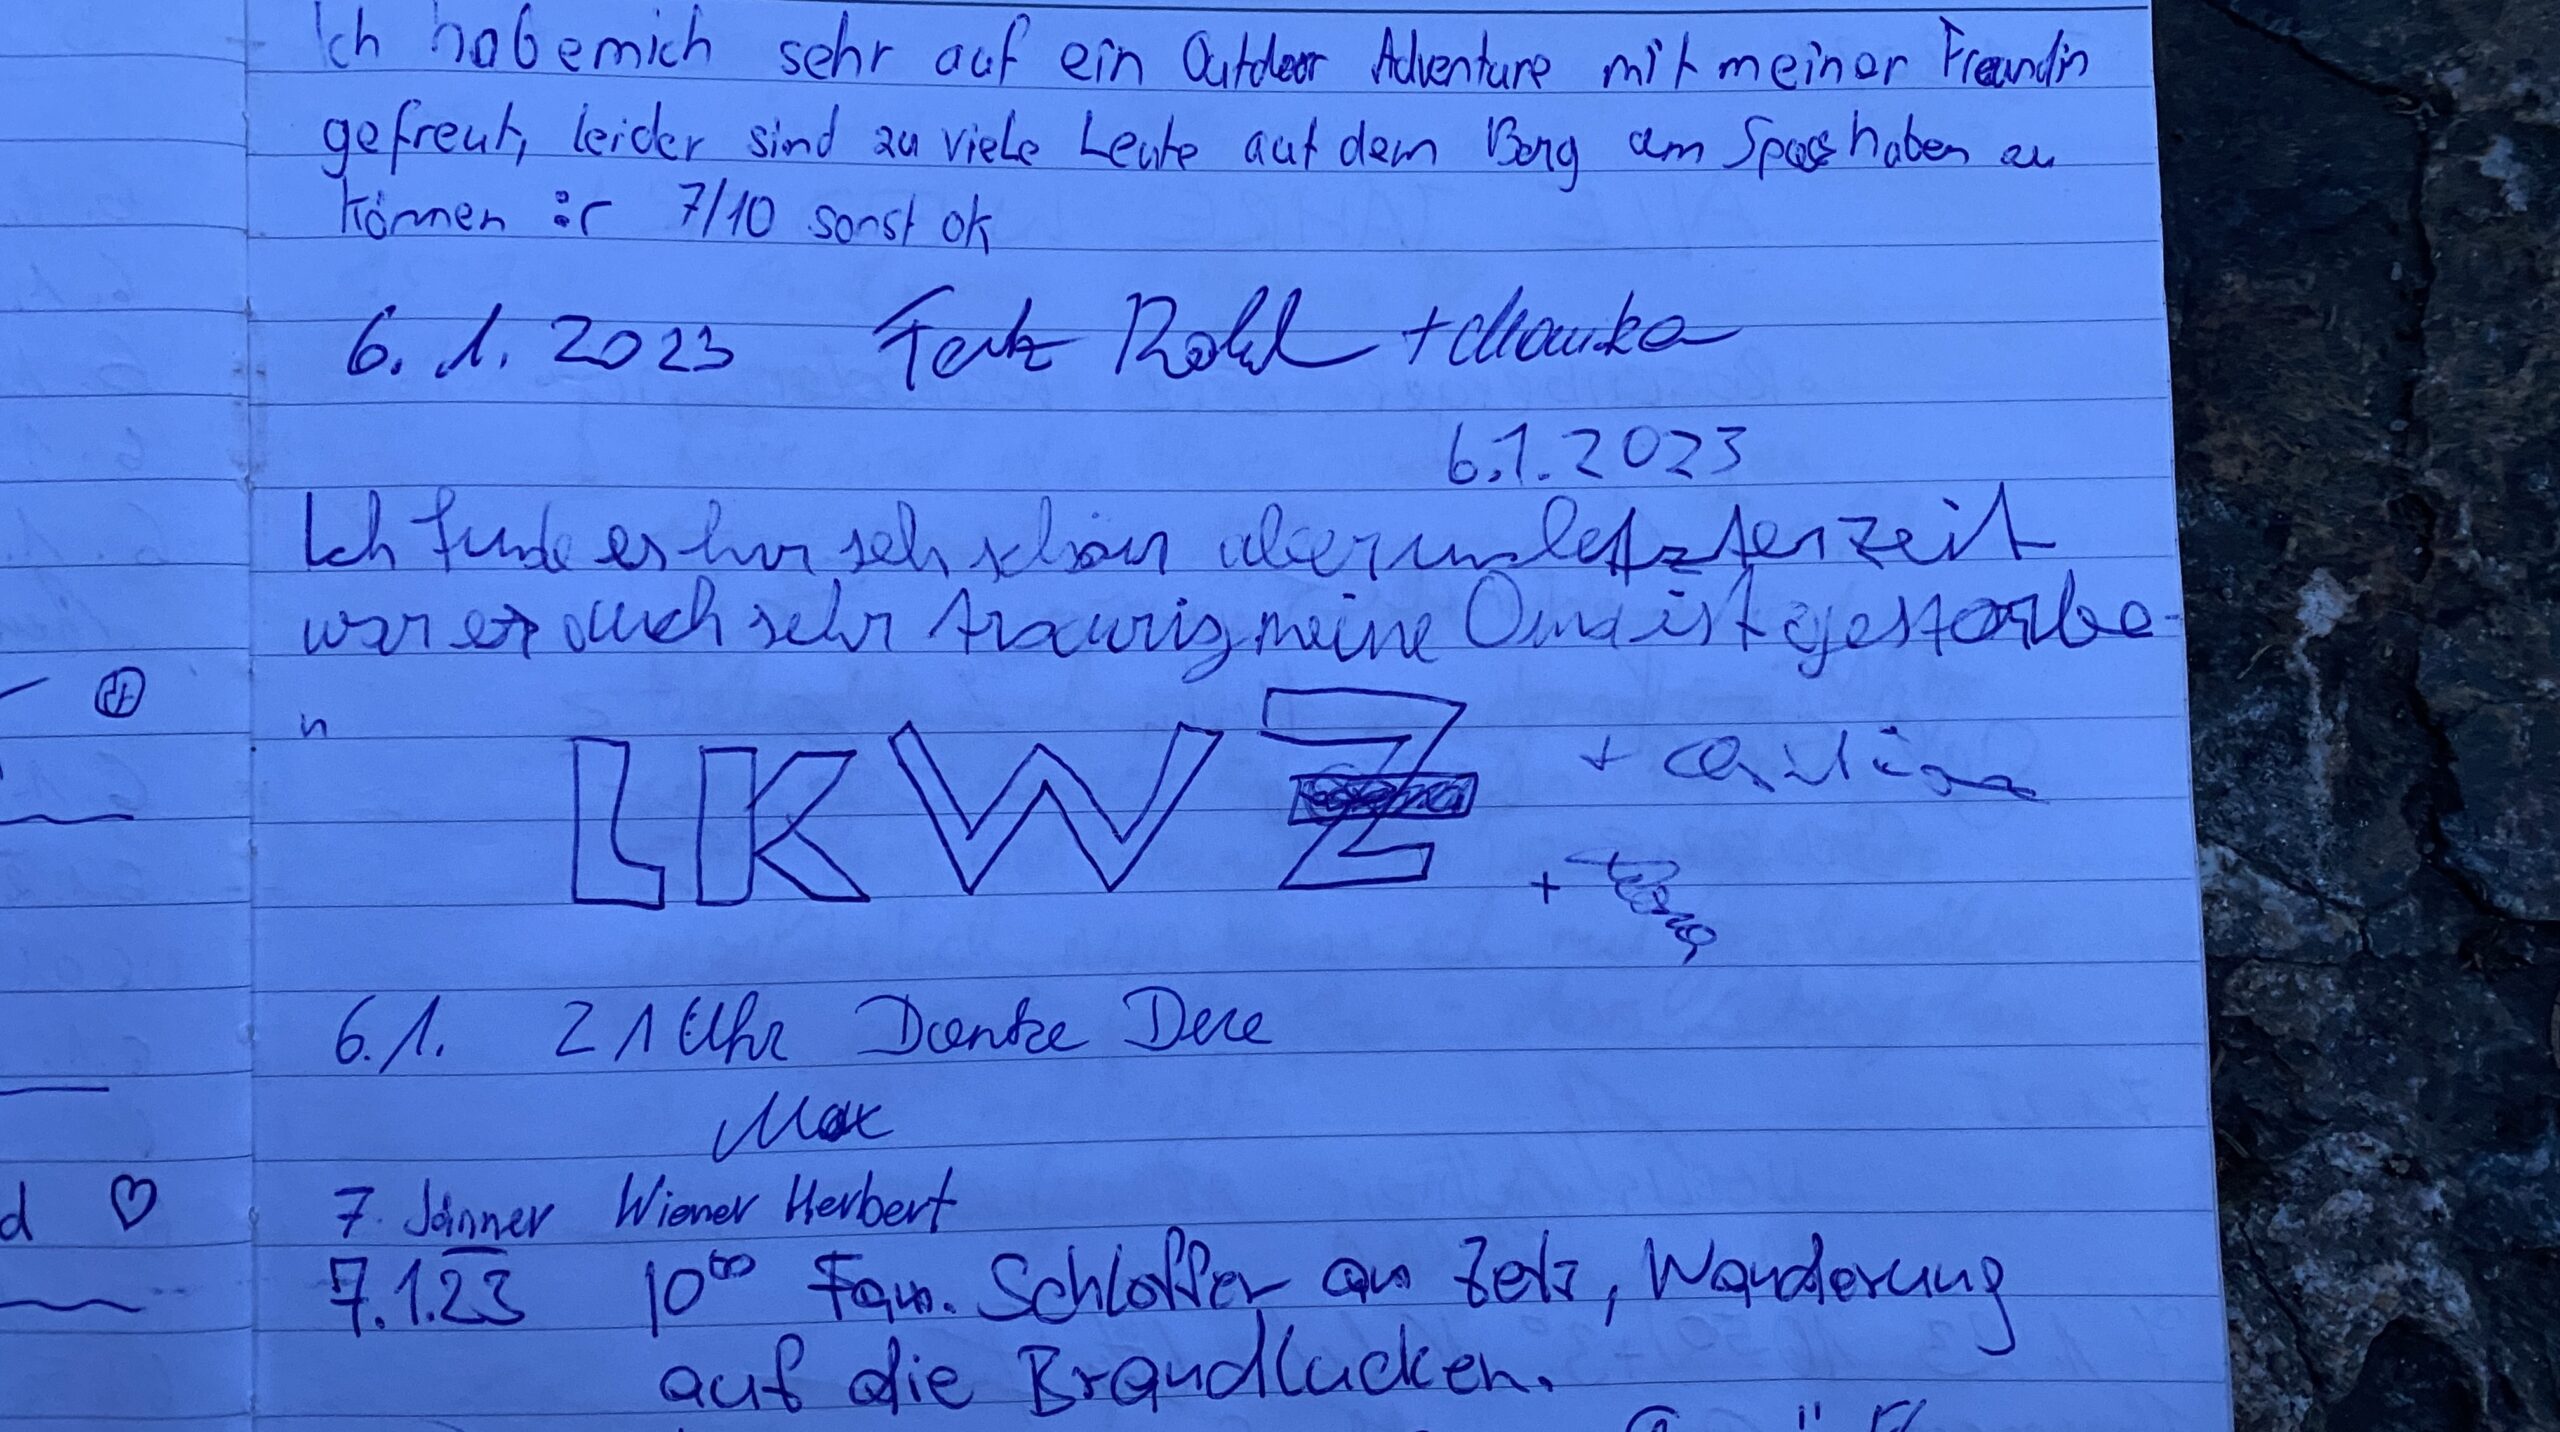 Ich habe mich sehr auf ein Outdoor Adventure mit meiner Freundin
gefreut, leider sind zu viele Leute auf dem Berg um Spass haben zu
können :( 7/10 sonst ok
6. 1. 2023
6.1.2023
Ich finde es hir seh schön aber in letzter zeit
war es auch sehr traurig meine Oma ist gestorbe-
n
LKW Z
+
+
6.1. 21 Uhr Danke Dere
Max
7. Jänner Wiener Herbert
7.1.23 10⁰⁰ Fam. Schloffer am Zetz, Wanderung
auf die Brandlucken.
d ♡